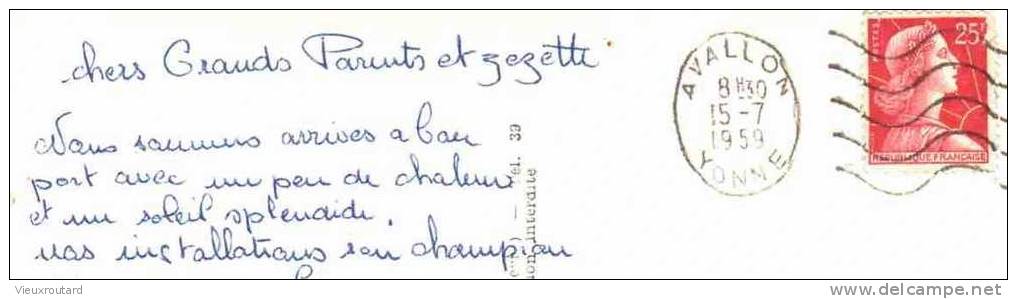 chers Grands Parents et Zezette
Nous sommes arrivés a bon
port avec un peu de chaleur
et un soleil splendide.
nos installations son champion
AVALLON
8H30
15-7
1959
YONNE
POSTES
25F
REPUBLIQUE FRANÇAISE
él. 39
ion interdite
Vieuxroutard
www.delcampe.net